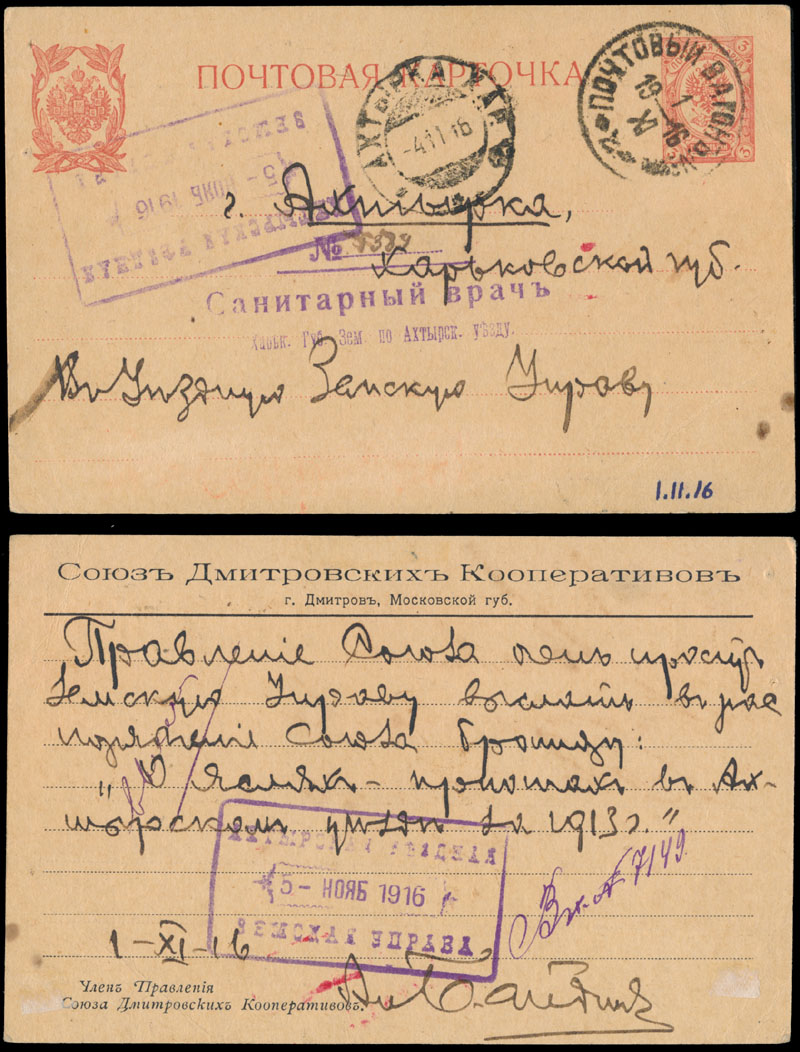 ПОЧТОВАЯ КАРТОЧКА
АХТЫРКА ХАР.
-4.11.16
ПОЧТОВЫЙ ВАГОНЪ
19 1 16
XI
3
АХТЫРСКАЯ УѢЗДНАЯ
5- НОЯБ 1916
ЗЕМСКАЯ
г. Ахтырка,
№
Харьковской губ.
Санитарный врачъ
Харьк. Губ. Зем. по Ахтырск. уѣзду.
Въ Уѣздную Земскую Управу
1.11.16
Союзъ Дмитровскихъ Кооперативовъ
г. Дмитровъ, Московской губ.
Правленіе Союза очень проситъ
Земскую Управу выслать въ рас
поряженіе Союза брошюру:
„О Ясляхъ-пріютахъ въ Ах-
тырскомъ уѣздѣ за 1913 г."
АХТЫРСКАЯ УѢЗДНАЯ
5- НОЯБ 1916
ЗЕМСКАЯ УПРАВА
Вх. № 7149
1-XI-16
Членъ Правленія
Союза Дмитровскихъ Кооперативовъ.